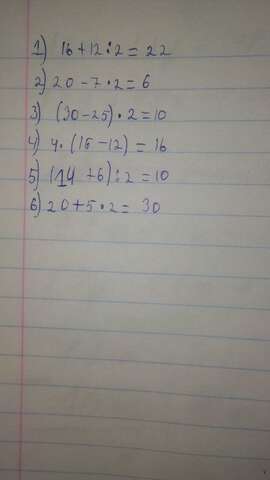 1) 16+12:2=22
2) 20-7·2=6
3) (30-25)·2=10
4) 4·(16-12)=16
5) (14+6):2=10
6) 20+5·2=30